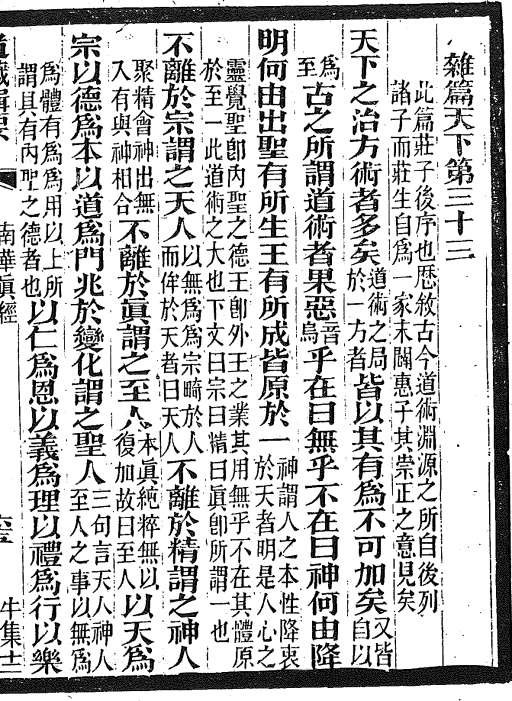 雜篇天下第三十三
此篇莊子後序也歷敘古今道術淵源之所自後列
諸子而莊生自爲一家末闢惠子其崇正之意見矣
天下之治方術者多矣道術之局於一方者皆以其有爲不可加矣又皆自以
爲至古之所謂道術者果惡音烏乎在曰無乎不在曰神何由降
明何由出聖有所生王有所成皆原於一神謂人之本性降衷於天者明是人心之
靈覺聖卽內聖之德王卽外王之業其用無乎不在其體原
於至一此道術之大也下文曰宗曰精曰眞卽所謂一也
不離於宗謂之天人以無爲爲宗畸於人而侔於天者曰天人不離於精謂之神人
聚精會神出無入有與神相合不離於眞謂之至人本眞純粹無以復加故曰至人以天爲
宗以德爲本以道爲門兆於變化謂之聖人三句言天人神人至人之事以無爲
爲體有爲爲用以上所謂具有內聖之德者也以仁爲恩以義爲理以禮爲行以樂
道藏輯要
南華眞經
牛集